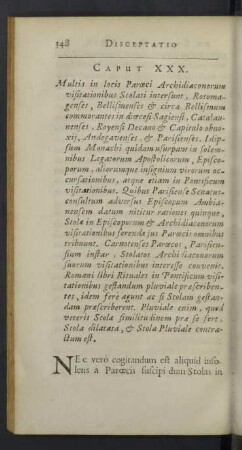 148 DISCEPTATIO
CAPUT XXX.
Multis in locis Parœci Archidiaconorum
visitationibus Stolati intersunt, Rotoma-
genses, Bellismenses & circa Bellismum
commorantes in diœcesi Sagiensi, Catalau-
nenses, Royensi Decano & Capitulo obno-
xii, Andegavenses, & Parisienses. Idip-
sum Monachi quidam usurpant in solem-
nibus Legatorum Apostolicorum, Episco-
porum, aliorumque insignium virorum oc-
cursationibus, atque etiam in Pontificum
visitationibus. Quibus Parisiense Senatus-
consultum adversus Episcopum Ambia-
nensem datum nititur rationes quinque,
Stolæ in Episcoporum & Archidiaconorum
visitationibus ferendæ jus Parœcis omnibus
tribuunt. Carnotenses Parœcos, Parisien-
sium instar, Stolatos Archidiaconorum
suorum visitationibus interesse convenit.
Romani libri Rituales in Pontificum visi-
tationibus gestandum pluviale præscriben-
tes, idem fere agunt ac si Stolam gestan-
dam præscriberent. Pluviale enim, quod
veteris Stolæ similitudinem præ se fert,
Stola dilatata, & Stola Pluviale contra-
ctum est.
NEc vero cogitandum est aliquid inso-
lens à Parœcis suscipi dum Stolas in